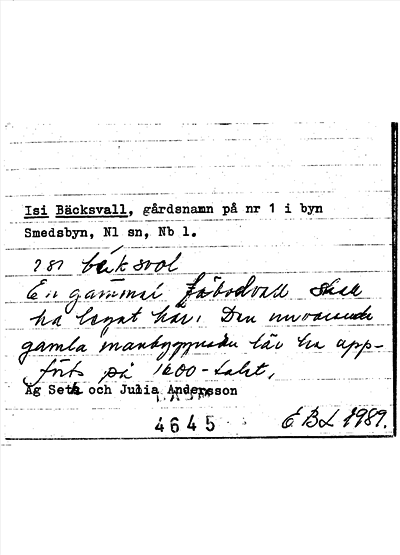 Isi Bäcksvall, gårdsnamn på nr 1 i byn
Smedsbyn, Nl sn, Nb l.
isi bäksvol
En gammal fäbodvall skall
ha legat här. Den nuvarande
gamla manbyggnaden lär ha upp-
förts på 1600-talet.
Äg Seth och Julia Andersson
4645
EBL 1989.